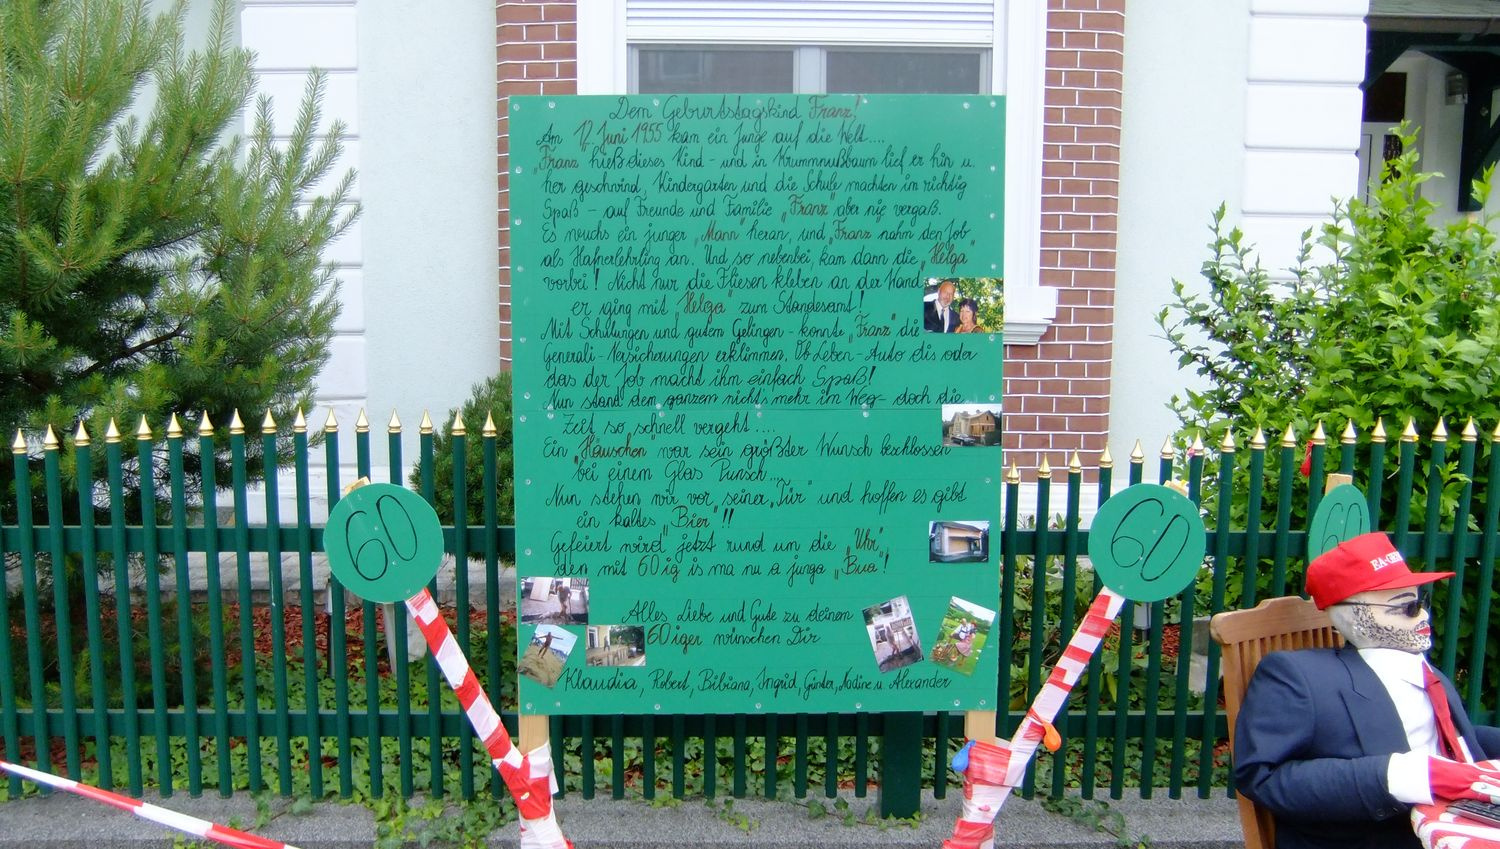 Dem Geburtstagskind Franz!
Am 12. Juni 1955 kam ein Junge auf die Welt....
"Franz" hieß dieses Kind - und in Krummnußbaum lief er hin u.
her geschwind, Kindergarten und die Schule machten im richtig
Spaß - auf Freunde und Familie "Franz" aber nie vergaß.
Es wuchs ein junger "Mann" heran, und "Franz nahm den Job
als Hafnerlehrling an. Und so nebenbei, kam dann die "Helga"
vorbei! Nicht nur die Fliesen kleben an der Hand
er ging mit "Helga" zum Standesamt!
Mit Schulungen und gutem Gelingen - konnte "Franz" die
Generali-Versicherungen erklimmen. Ob Leben - Auto dis oder
das der Job macht ihm einfach Spaß!
Nun stand dem ganzem nichts mehr im Weg - doch die
Zeit so schnell vergeht....
Ein "Häuschen" war sein größter Wunsch beschlossen
bei einem Glas Punsch....
Nun stehen wir vor seiner "Tür" und hoffen es gibt
ein kaltes "Bier"!!
Gefeiert wird jetzt rund um die "Uhr"
den mit 60ig is ma nu a junga "Bua"!
Alles Liebe und Gute zu deinem
60iger wünschen Dir
Klaudia, Robert, Bibiana, Ingrid, Günter, Nadine u. Alexander
60
60
60